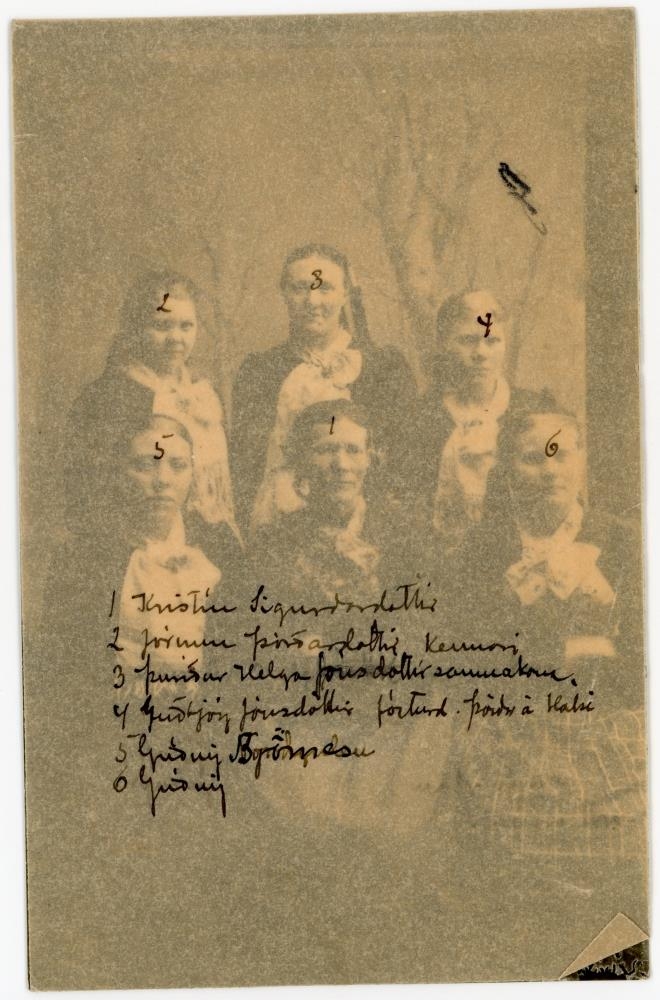 2
3
4
5
1
6
1 Kristín Sigurdardottir
2 Jórunn Þórðardottir Kennari
3 Þuríður Helga Jónsdóttir saumakona.
4 Guðbjörg Jónsdóttir fósturd. Þórðr á Halsi
5 Guðný
6 Guðný